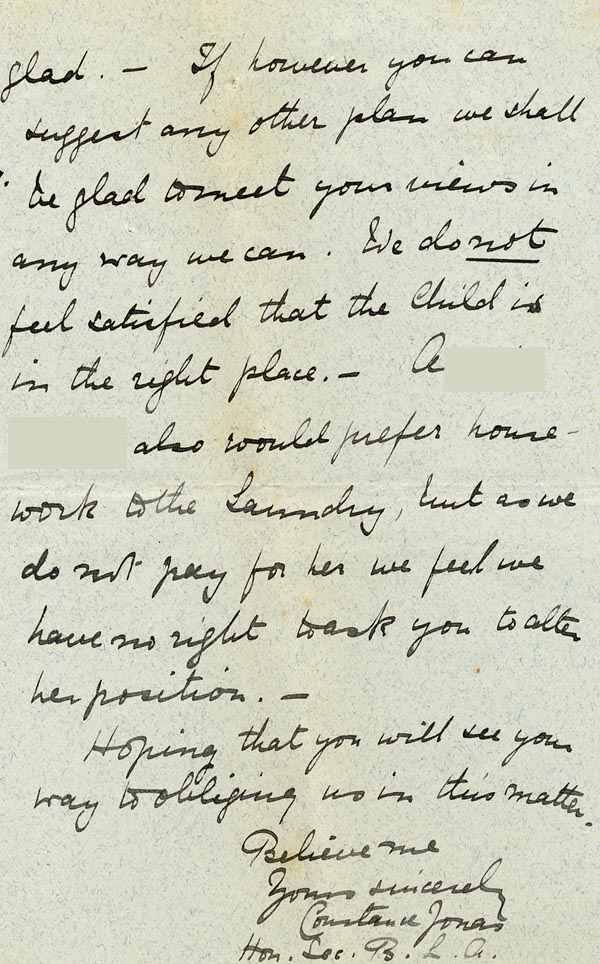 glad. — If however you can
suggest any other plan we shall
be glad to meet your views in
any way we can. We do not
feel satisfied that the Child is
in the right place. — A
also would prefer house-
work to the Laundry, but as we
do not pay for her we feel we
have no right to ask you to alter
her position. —
Hoping that you will see your
way to obliging us in this matter.
Believe me
Yours sincerely
Constance Jonas
Hon. Sec. B. L. A.